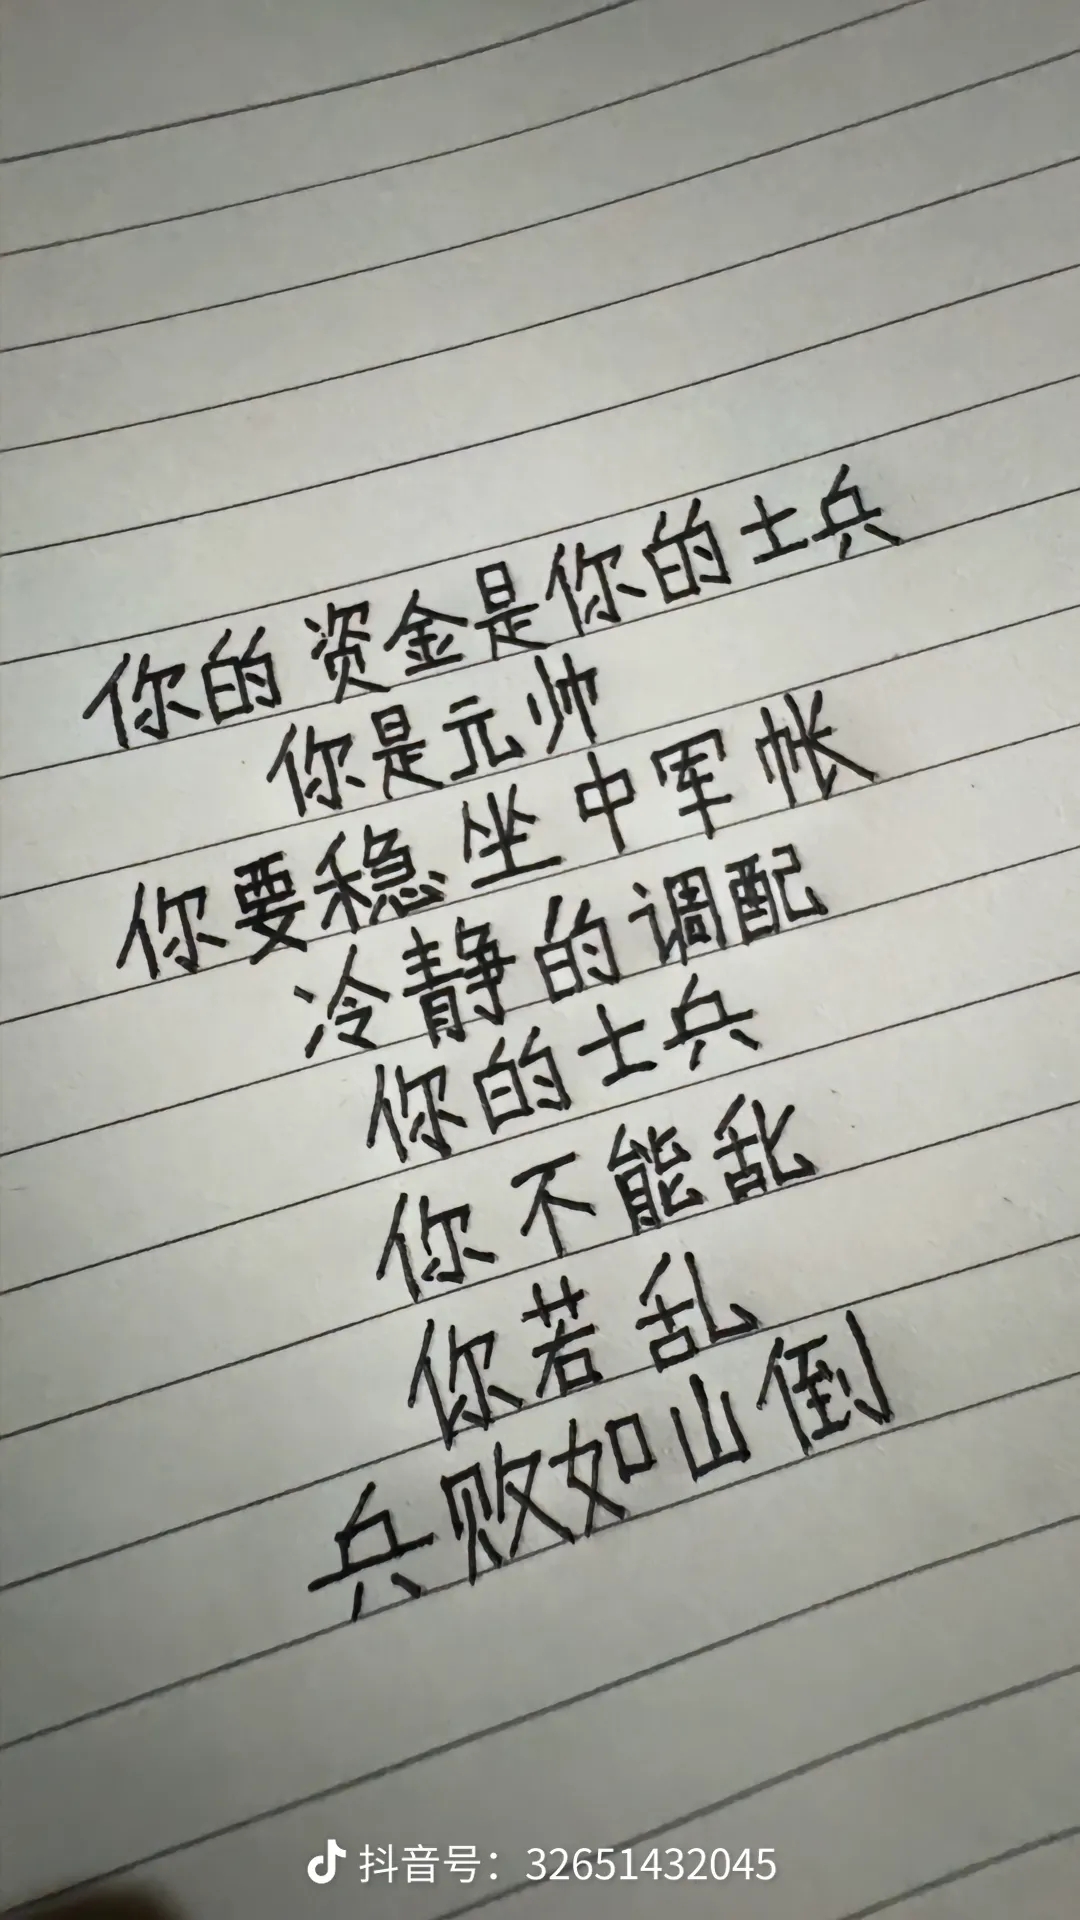 你的资金是你的士兵
你是元帅
你要稳坐中军帐
冷静的调配
你的士兵
你不能乱
你若乱
兵败如山倒
抖音号：32651432045